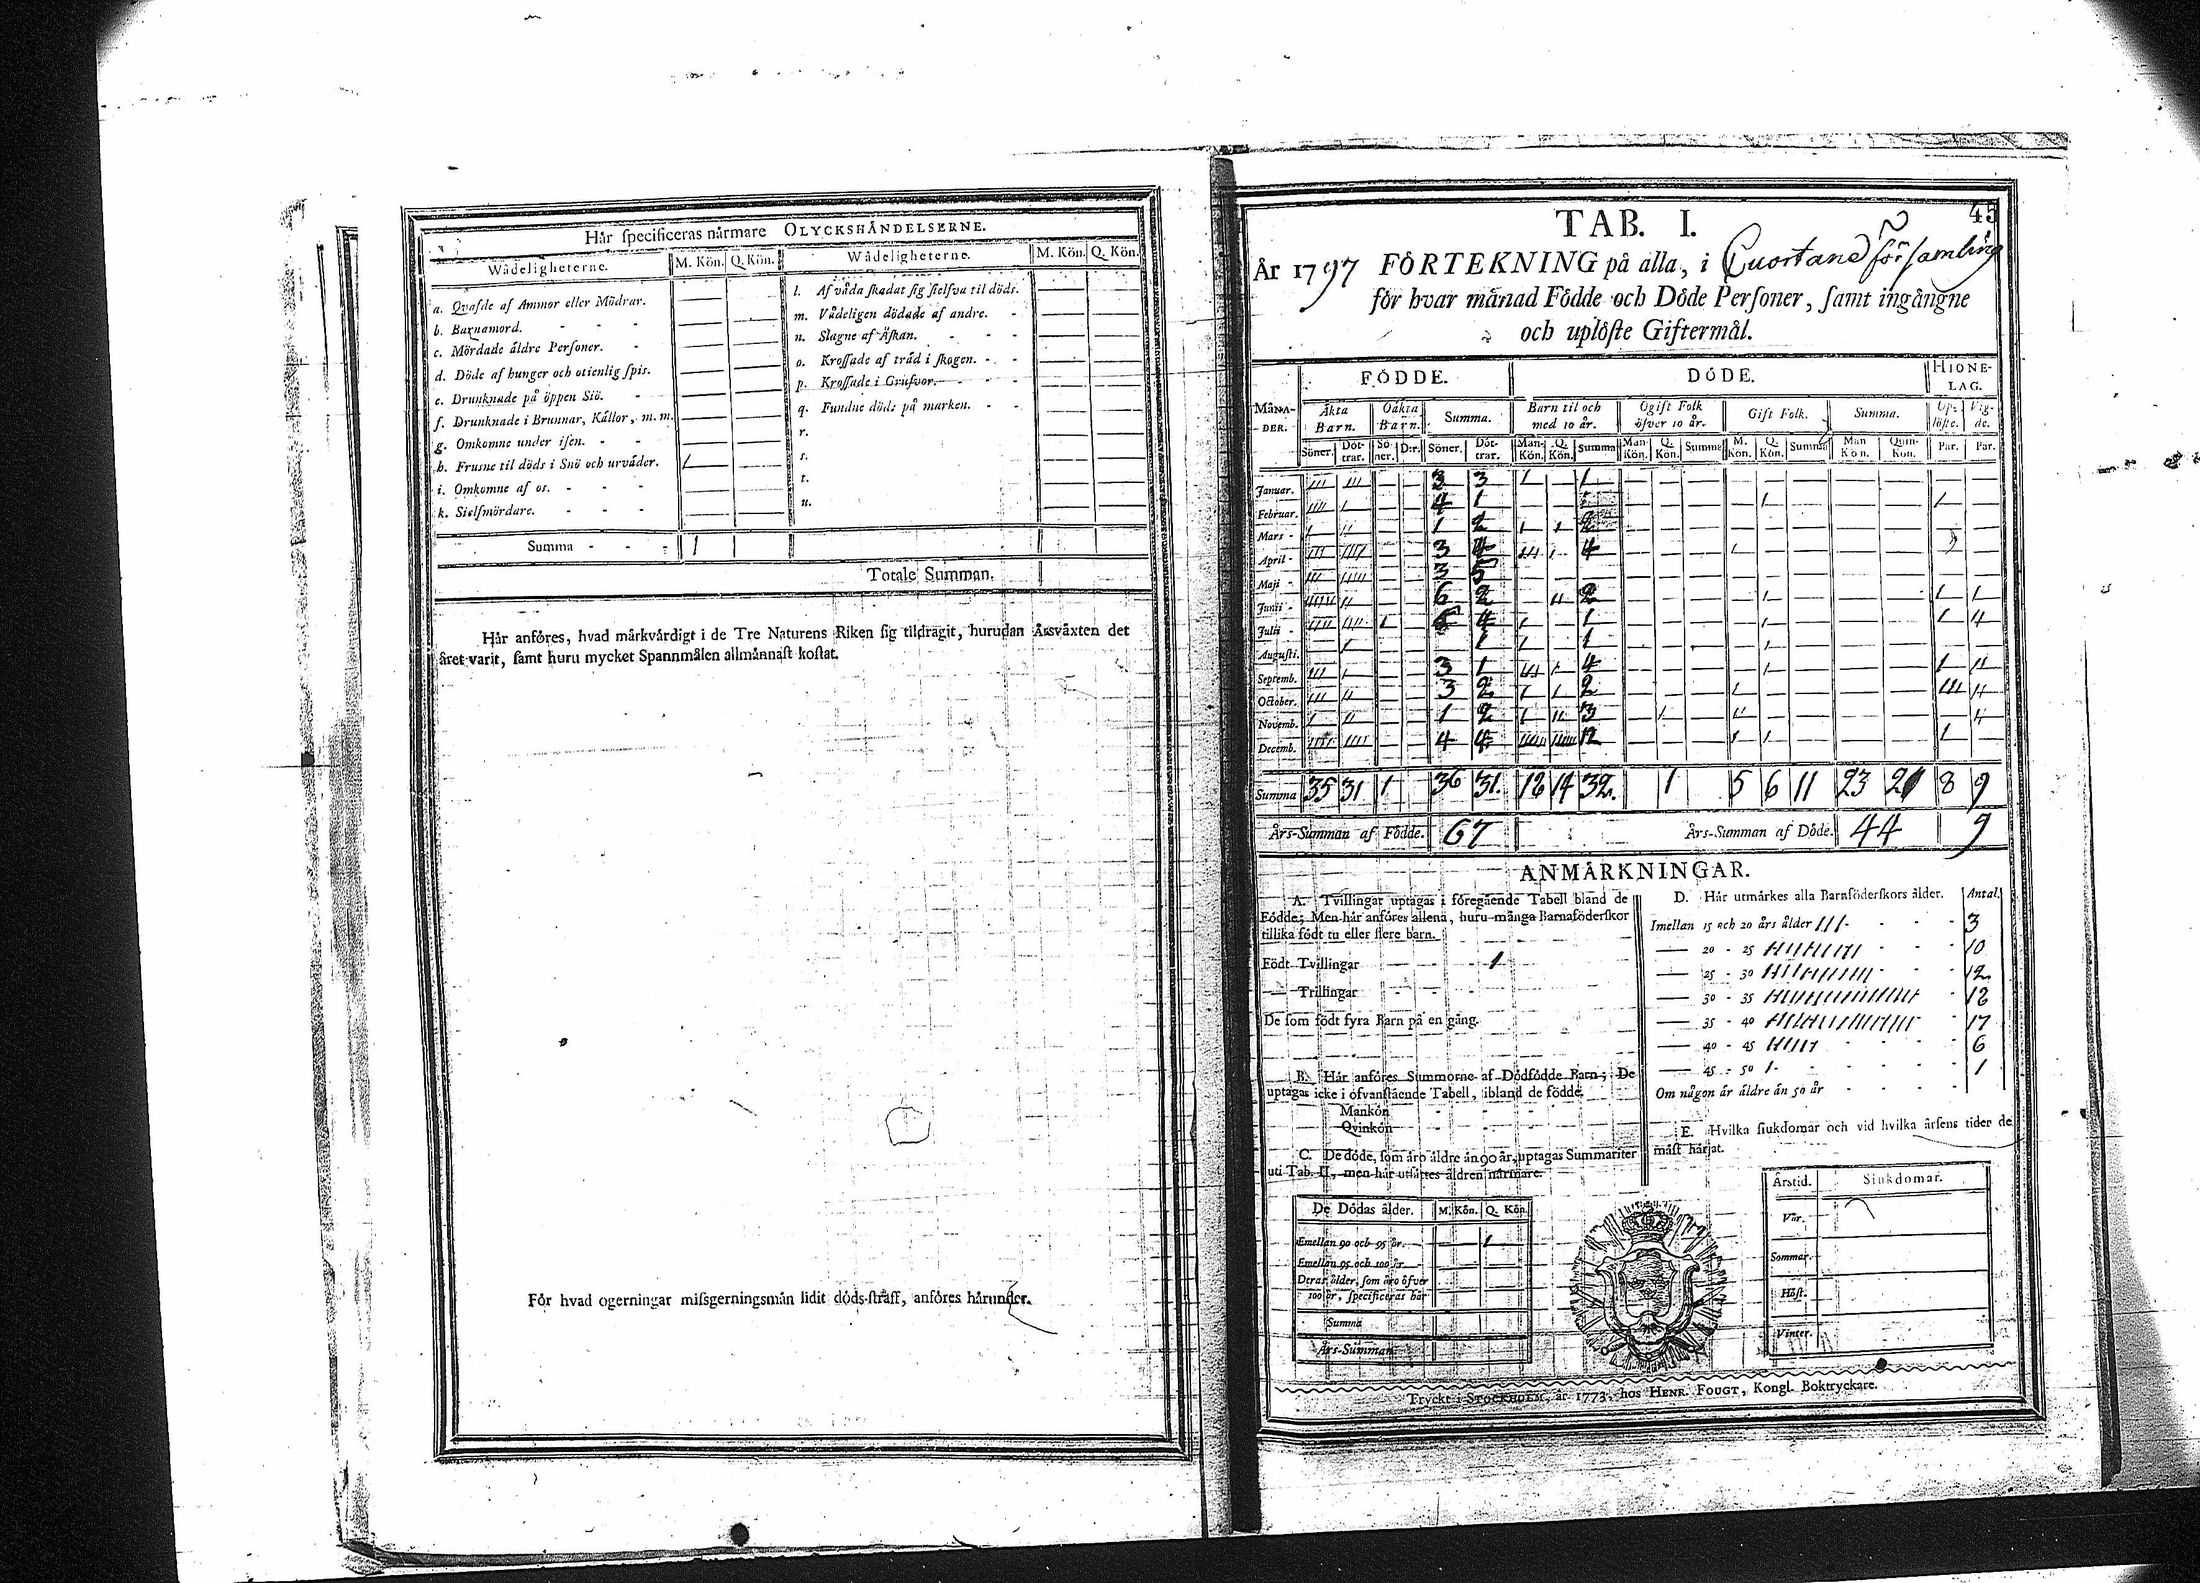 Hår ſpecificeras nårmare OLYCKSHÅNDELSERNE.
Wådeligheterne. M. Kön. Q. Kön. Wådeligheterne. M. Kön. Q. Kön.
a. Qvafde af Ammor eller Mödrar.
b. Barnamord. - - -
c. Mördade äldre Perſoner. -
d. Döde af hunger och otienlig ſpis.
e. Drunknade på öppen Siö. -
f. Drunknade i Brunnar, Kållor, m. m.
g. Omkomne under iſen. - -
h. Fruſne til döds i Snö och urväder. 1
i. Omkomne af os. - - -
k. Sielfmördare. - - -
l. Af våda ſkadat ſig ſielfva til döds.
m. Vådeligen dödade af andre. -
n. Slagne af Åſkan. - - -
o. Kroſſade af träd i ſkogen. - -
p. Kroſſade i Grufvor. - -
q. Fundne döde på marken. - -
r.
s.
t.
u.
Summa - - - 1
Totale Summan.
Hår anföres, hvad mårkvårdigt i de Tre Naturens Riken ſig tildragit, hurudan Årsvåxten det
året varit, ſamt huru mycket Spannmålen allmånnaſt koſtat.
Før hvad ogerningar miſsgerningsmån lidit döds-ſtraff, anföres hårunder.
45
TAB. I.
År 1797 FÖRTEKNING på alla, i församling
för hvar månad Födde och Döde Perſoner, ſamt ingångne
och uplöſte Giftermål.
MÅNA-DER. FÖDDE. DÖDE. HIONE-LAG.
Äkta Barn. Oäkta Barn. Summa. Barn til och med 10 år. Ogift Folk öfver 10 år. Gift Folk. Summa. Up-löſte. Vig-de.
Söner. Döt-trar. Sö-ner. D:r. Söner. Döt-trar. Man-Kön. Q. Kön. Summa Man-Kön. Q. Kön. Summa M. Kön. Q. Kön. Summa Man Kön. Quin-Kön. Par. Par.
Januar. III III 3 3 1 1
Februar. IIII I 4 1 1 1
Mars - I II 1 2 1 1 2
April - III IIII 3 4 III I 4 1
Maji - III IIIII 3 5
Junii - IIIIII II 6 2 II 2 1 1 1
Julii - IIII I 4 1 1 1 1 II
Auguſti. I 1 1 1 1
Septemb. III I 3 1 III I 4 1 1 II
October. III II 3 2 1 1 2 1 III II
Novemb. I II 1 2 1 II 3 1 II II
Decemb. IIII IIII 4 4 12 1 1 1
Summa 35 31 1 36 31. 18 14 32. 1 5 6 11 23 21 8 9
Års-Summan af Födde. 67 Års-Summan af Döde. 44 9
ANMÄRKNINGAR.
A. Tvillingar uptagas i föregående Tabell bland de
Födde; Men hår anföres allena, huru många Barnaföderſkor
tillika födt tu eller flere barn.
Födt Tvillingar - - - 1
— Trillingar - - -
De ſom födt fyra Barn på en gång.
B. Hår anföres Summorne af Dödfödde Barn; De
uptagas icke i ofvanſtående Tabell, ibland de födde.
Mankön
Qvinkön
C. De döde, ſom äro äldre än 90 år, uptagas Summariter
uti Tab. II, men hår utſättes åldren nårmare.
De Dödas ålder. M. Kön. Q. Kön.
Emellan 90 och 95 år. 1
Emellan 95 och 100 år
Deras ålder, ſom äro öfver
100 år, ſpecificeras här
Summa
Års-Summan
D. Hår utmårkes alla Barnföderſkors ålder. Antal.
Imellan 15 och 20 års ålder III - - - 3
— 20 - 25 IIIIIIIIII - - 10
— 25 - 30 IIIIIIIIIIII - - 12
— 30 - 35 IIIIIIIIIIIIIIIIII - 18
— 35 - 40 IIIIIIIIIIIIIIIII - 17
— 40 - 45 IIIIII - - - 6
— 45 - 50 I - - - - 1
Om någon är äldre än 50 år - - - -
E. Hvilka ſiukdomar och vid hvilka årſens tider de
måſt härjat.
Årstid. Siukdomar.
Vår.
Sommar.
Höſt.
Vinter.
Tryckt i STOCKHOLM, år 1773, hos HENR. FOUGT, Kongl. Boktryckare.